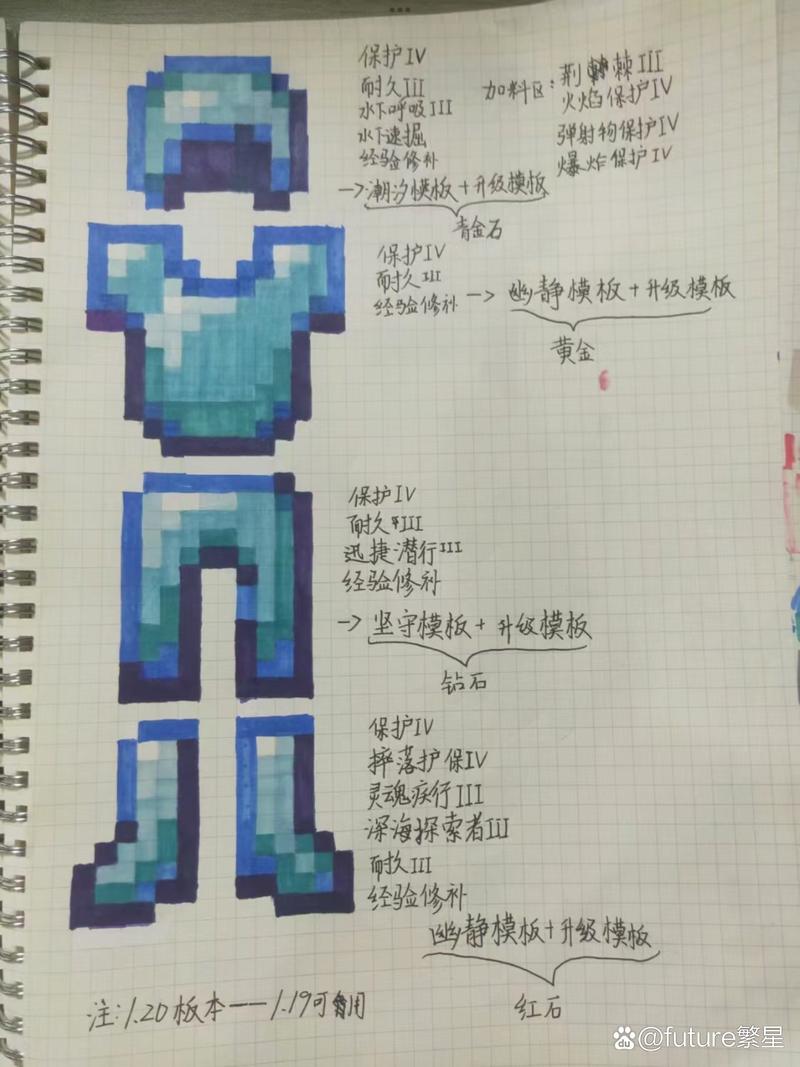 保护IV
耐久III
水下呼吸III
水下速掘
经验修补
加料区:荆棘III
火焰保护IV
弹射物保护IV
爆炸保护IV
->潮汐模板+升级模板
青金石
保护IV
耐久III
经验修补->幽静模板+升级模板
黄金
保护IV
耐久III
迅捷潜行III
经验修补
->坚守模板+升级模板
钻石
保护IV
摔落护保IV
灵魂疾行III
深海探索者III
耐久III
经验修补
幽静模板+升级模板
红石
注:1.20板本——1.19可用
Bai度@future繁星